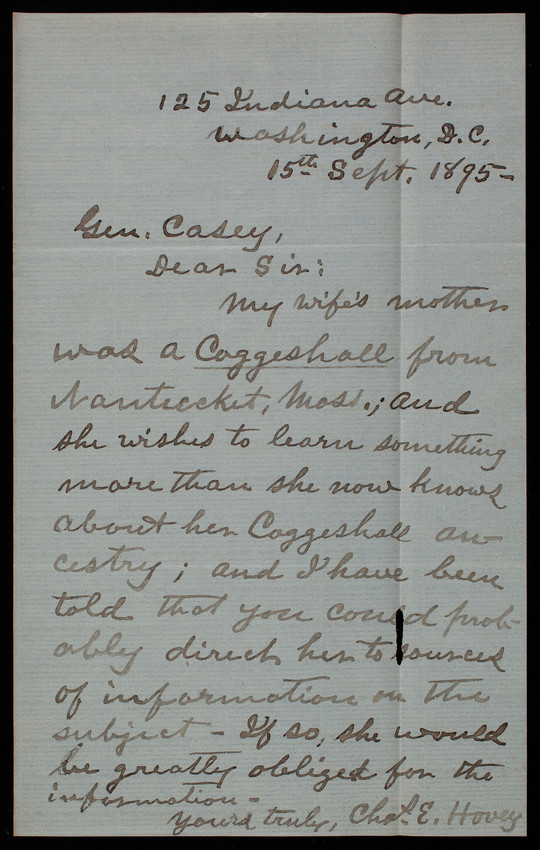 125 Indiana Ave.
Washington, D.C.
15th Sept. 1895-
Gen. Casey,
Dear Sir:
My wife's mother
was a Coggeshall from
Nantucket, Mass.; and
she wishes to learn something
more than she now knows
about her Coggeshall an-
cestry; and I have been
told that you could prob-
ably direct her to sources
of information on the
subject - If so, she would
be greatly obliged for the
information -
Yours truly, Chas. E. Hovey